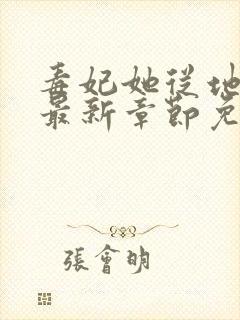 毒妃她從地
最新章節免
張會明